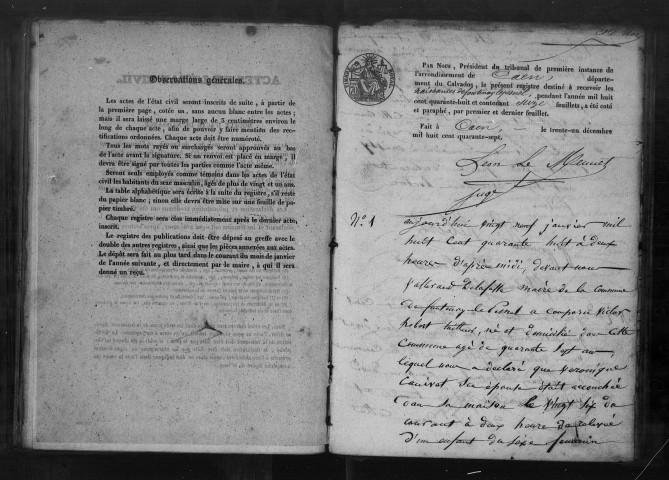 Observations générales.
Les actes de l'état civil seront inscrits de suite, à partir de
la première page, cotée un, sans aucun blanc entre les actes;
mais il sera laissé une marge large de 5 centimètres environ le
long de chaque acte, afin de pouvoir y faire mention des rec-
tifications ordonnées. Chaque acte doit être numéroté.
Tous les mots rayés ou surchargés seront approuvés au bas
de l'acte avant la signature. Si un renvoi est placé en marge, il
devra être signé par toutes les parties comme l'acte même.
Seront seuls employés comme témoins dans les actes de l'état
civil les habitants du sexe masculin, âgés de plus de vingt et un ans.
La table alphabétique sera écrite à la suite du registre, s'il reste
du papier blanc; sinon elle devra être mise sur une feuille de
papier timbré.
Chaque registre sera clos immédiatement après le dernier acte,
inscrit.
Le registre des publications doit être déposé au greffe avec le
double des autres registres, ainsi que les pièces annexées aux actes.
Le dépôt sera fait au plus tard dans le courant du mois de janvier
de l'année suivante, et directement par le maire, à qui il sera
donné un reçu.
Par Nous, Président du tribunal de première instance de
l'arrondissement de Caen, départe-
ment du Calvados, le présent registre destiné à recevoir les
naissances de fontenay le pesnel, pendant l'année mil huit
cent quarante-huit et contenant seize feuillets, a été coté
et paraphé, par premier et dernier feuillet.
Fait à Caen, le trente-un décembre
mil huit cent quarante-sept,
juge
N.° 1
aujourd'hui vingt neuf janvier mil
huit Cent quarante huit à deux
heure d'après midi, devant nous
maire de la Commune
de fontenay le Pesnel a comparu Victor
né et domicilié dans cette
Commune agé de quarante sept ans
lequel nous a déclaré que veronique
son épouse était accouchée
dans sa maison le vingt six du
courant à deux heure de relevée
d'un enfant du sexe feminin